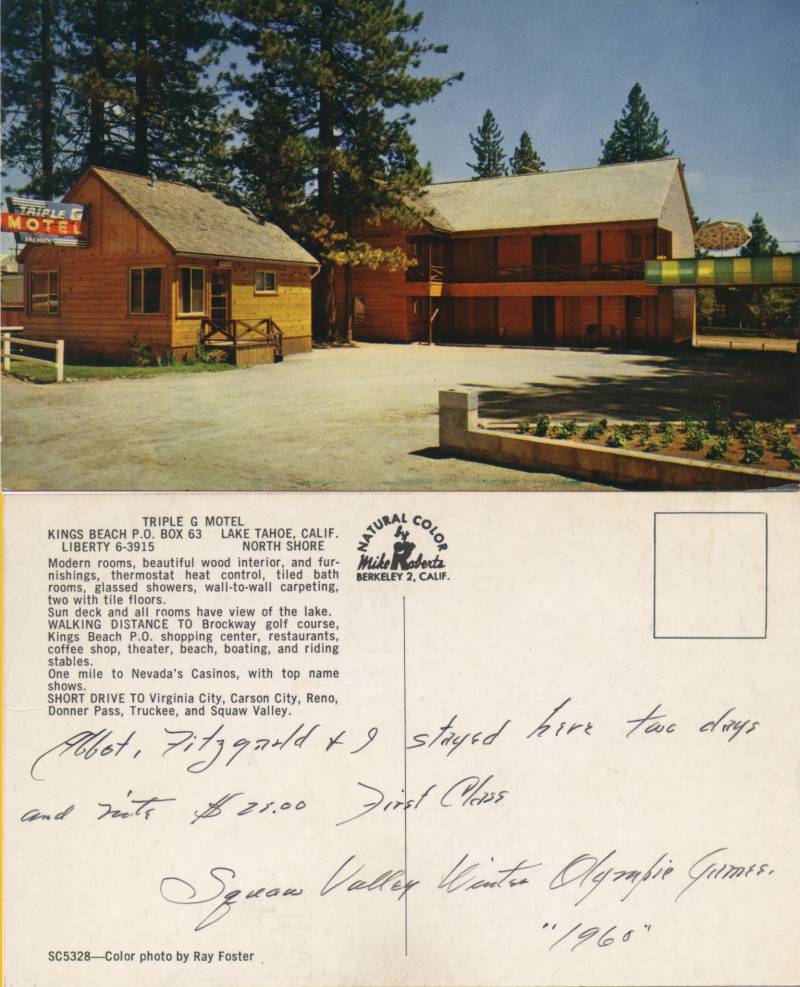 TRIPLE G
MOTEL
VACANCY
TRIPLE G MOTEL
KINGS BEACH P.O. BOX 63 LAKE TAHOE, CALIF.
LIBERTY 6-3915 NORTH SHORE
Modern rooms, beautiful wood interior, and fur-
nishings, thermostat heat control, tiled bath
rooms, glassed showers, wall-to-wall carpeting,
two with tile floors.
Sun deck and all rooms have view of the lake.
WALKING DISTANCE TO Brockway golf course,
Kings Beach P.O. shopping center, restaurants,
coffee shop, theater, beach, boating, and riding
stables.
One mile to Nevada's Casinos, with top name
shows.
SHORT DRIVE TO Virginia City, Carson City, Reno,
Donner Pass, Truckee, and Squaw Valley.
NATURAL COLOR
by
Mike Roberts
BERKELEY 2, CALIF.
Abbot, Fitzgerald & I stayed here two days
and nite $ 28.00 First Class
Squaw Valley Winter Olympic Games.
"1960"
SC5328—Color photo by Ray Foster